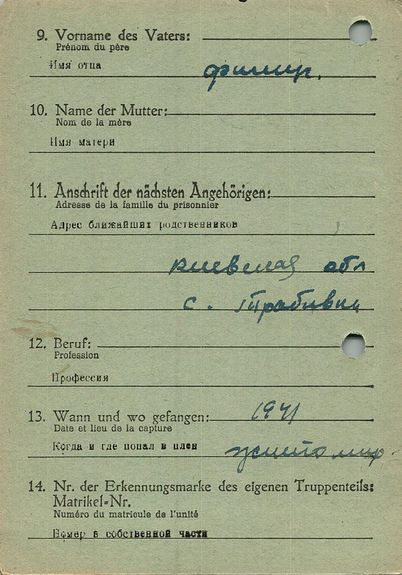 9. Vorname des Vaters:
Prénom du père
Имя отца
филип.
10. Name der Mutter:
Nom de la mère
Имя матери
11. Anschrift der nächsten Angehörigen:
Adresse de la famille du prisonnier
Адрес ближайших родственников
киевская обл
с.
12. Beruf:
Profession
Профессия
13. Wann und wo gefangen: 1941
Date et lieu de la capture
Когда и где попал в плен житомир.
14. Nr. der Erkennungsmarke des eigenen Truppenteils:
Matrikel-Nr.
Numéro du matricule de l'unité
Номер в собственной части